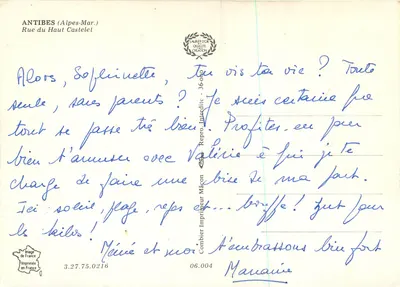 ANTIBES (Alpes-Mar.)
Rue du Haut Castelet
Alors, Sophinette, tu vis ta vie ? Toute
seule, sans parents ? Je suis certaine que
tout se passe très bien. Profites-en pour
bien t'amuser avec Valérie à qui je te
charge de faire une bise de ma part.
Ici soleil, plage, repos et... bouffe! Zut pour
les kilos!
Mémé et moi t'embrassons bien fort
Mamaine
Combier Imprimeur Mâcon
Repro. Interdite
Imprimée
en France
3.27.75.0216
06.004